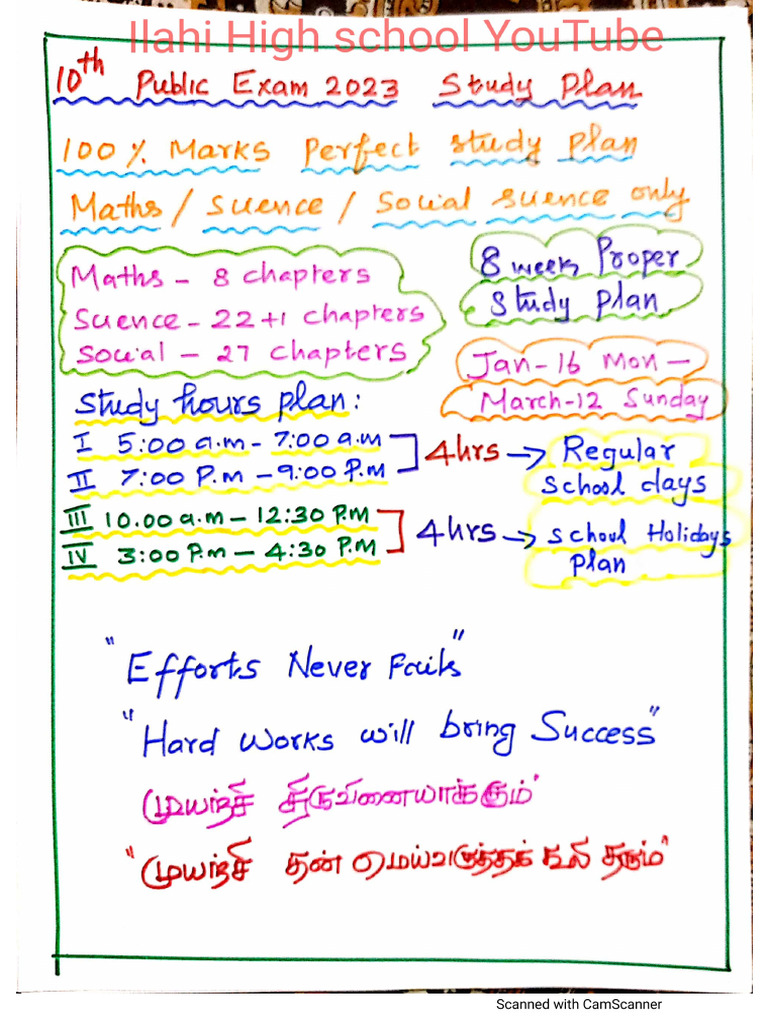 Ilahi High school YouTube
10th Public Exam 2023 Study Plan
100 % Marks Perfect study plan
Maths / Suence / Souial suence only
Maths - 8 chapters
Suence - 22+1 chapters
Souial - 27 chapters
8 week Proper
Study plan
Jan-16 Mon -
March-12 Sunday
Study hours plan:
I 5:00 a.m - 7:00 a.m
II 7:00 P.m - 9:00 P.m
4hrs → Regular
school days
III 10.00 a.m - 12:30 P.M
IV 3:00 P.m - 4:30 P.M
4hrs → school Holidays
Plan
"Efforts Never Fails"
"Hard Works will bring Success"
முயற்சி திருவினையாக்கும்"
"முயற்சி தன் மெய்வருத்தக் கூலி தரும்"
Scanned with CamScanner